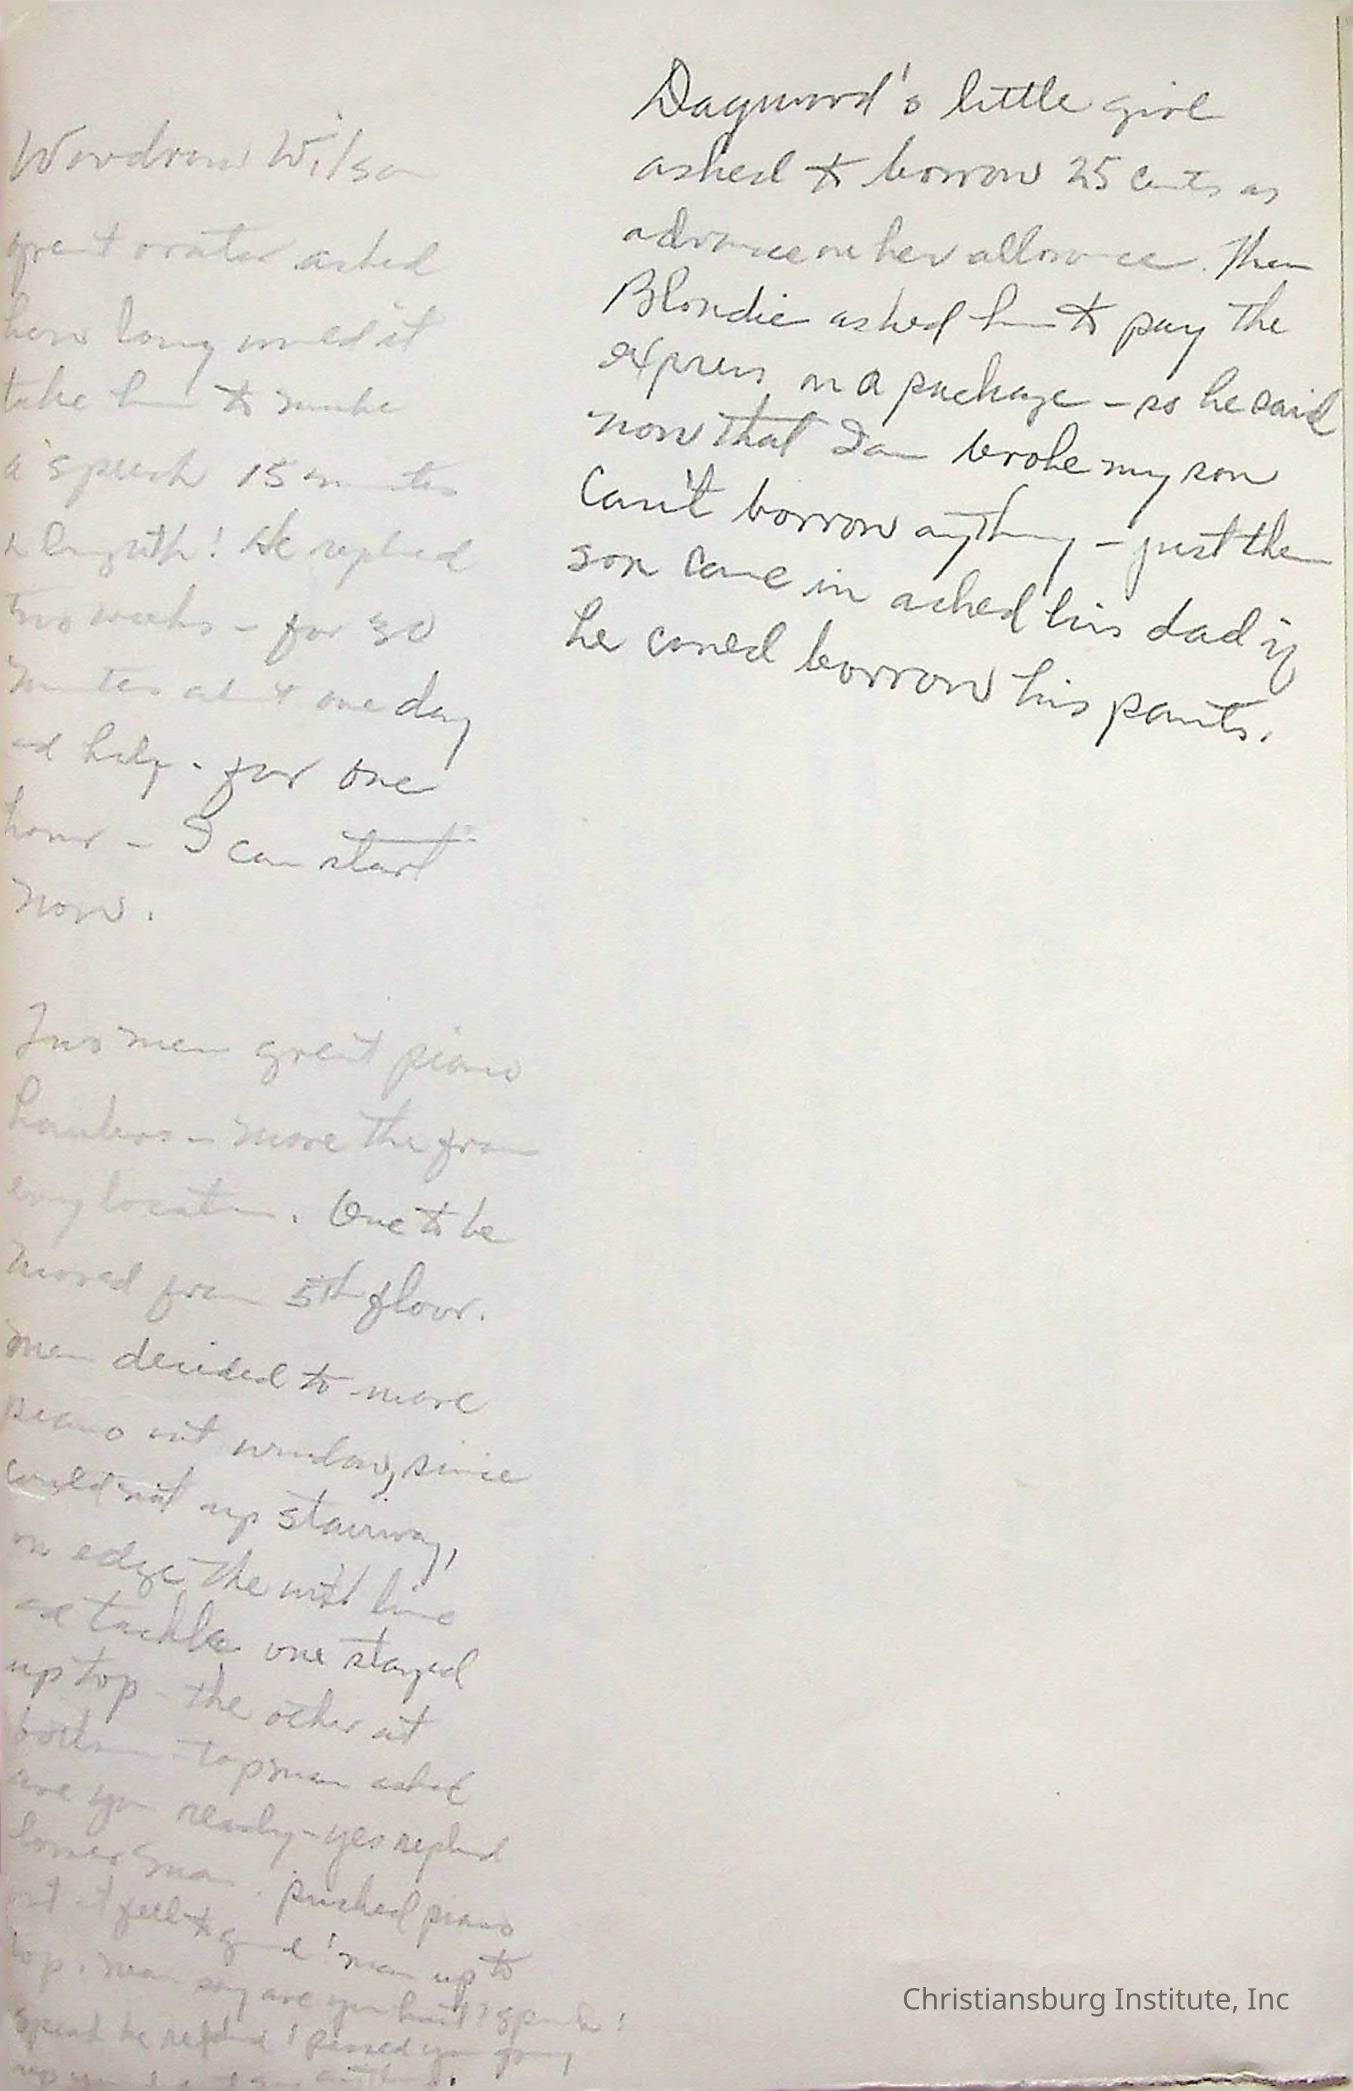 Woodrow Wilson
great orator asked
how long would it
take him to make
a speech 15 minutes
in length! He replied
two weeks - for 30
minutes about one day
and help - for one
hour - I can start
now.
Two men great piano
haulers - move the from
any location. One to be
moved from 5th floor.
men decided to move
piano out window, since
could not up stairway,
on edge the with line
and tackle one stayed
up top - the other at
bottom - top man asked
are you ready - yes replied
lower man. pushed piano
out it fell to ground man up to
top. man say are you hurt? speak!
speak he replied I passed you going
up you
Dagwood's little girl
asked to borrow 25 cents as
advance on her allowance. Then
Blondie asked him to pay the
express on a package - so he said
now that I am broke my son
Can't borrow anything - just then
son came in asked his dad if
he could borrow his pants.
Christiansburg Institute, Inc